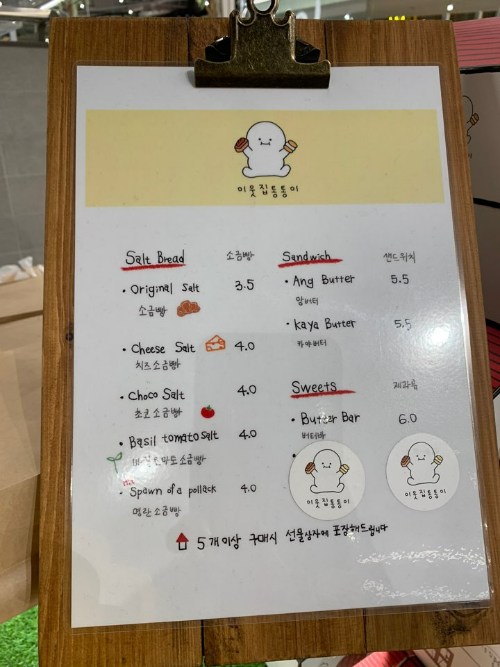 이웃집통통이
Salt Bread 소금빵
• Original salt 3.5
소금빵
• Cheese Salt 4.0
치즈소금빵
• Choco Salt 4.0
초코소금빵
• Basil tomato salt 4.0
바질토마토소금빵
• Spawn of a pollack 4.0
명란소금빵
Sandwich 샌드위치
• Ang Butter 5.5
앙버터
• Kaya Butter 5.5
카야버터
Sweets 제과류
• Butter Bar 6.0
버터바
이웃집통통이
이웃집통통이
5개이상 구매시 선물상자에 포장해드립니다